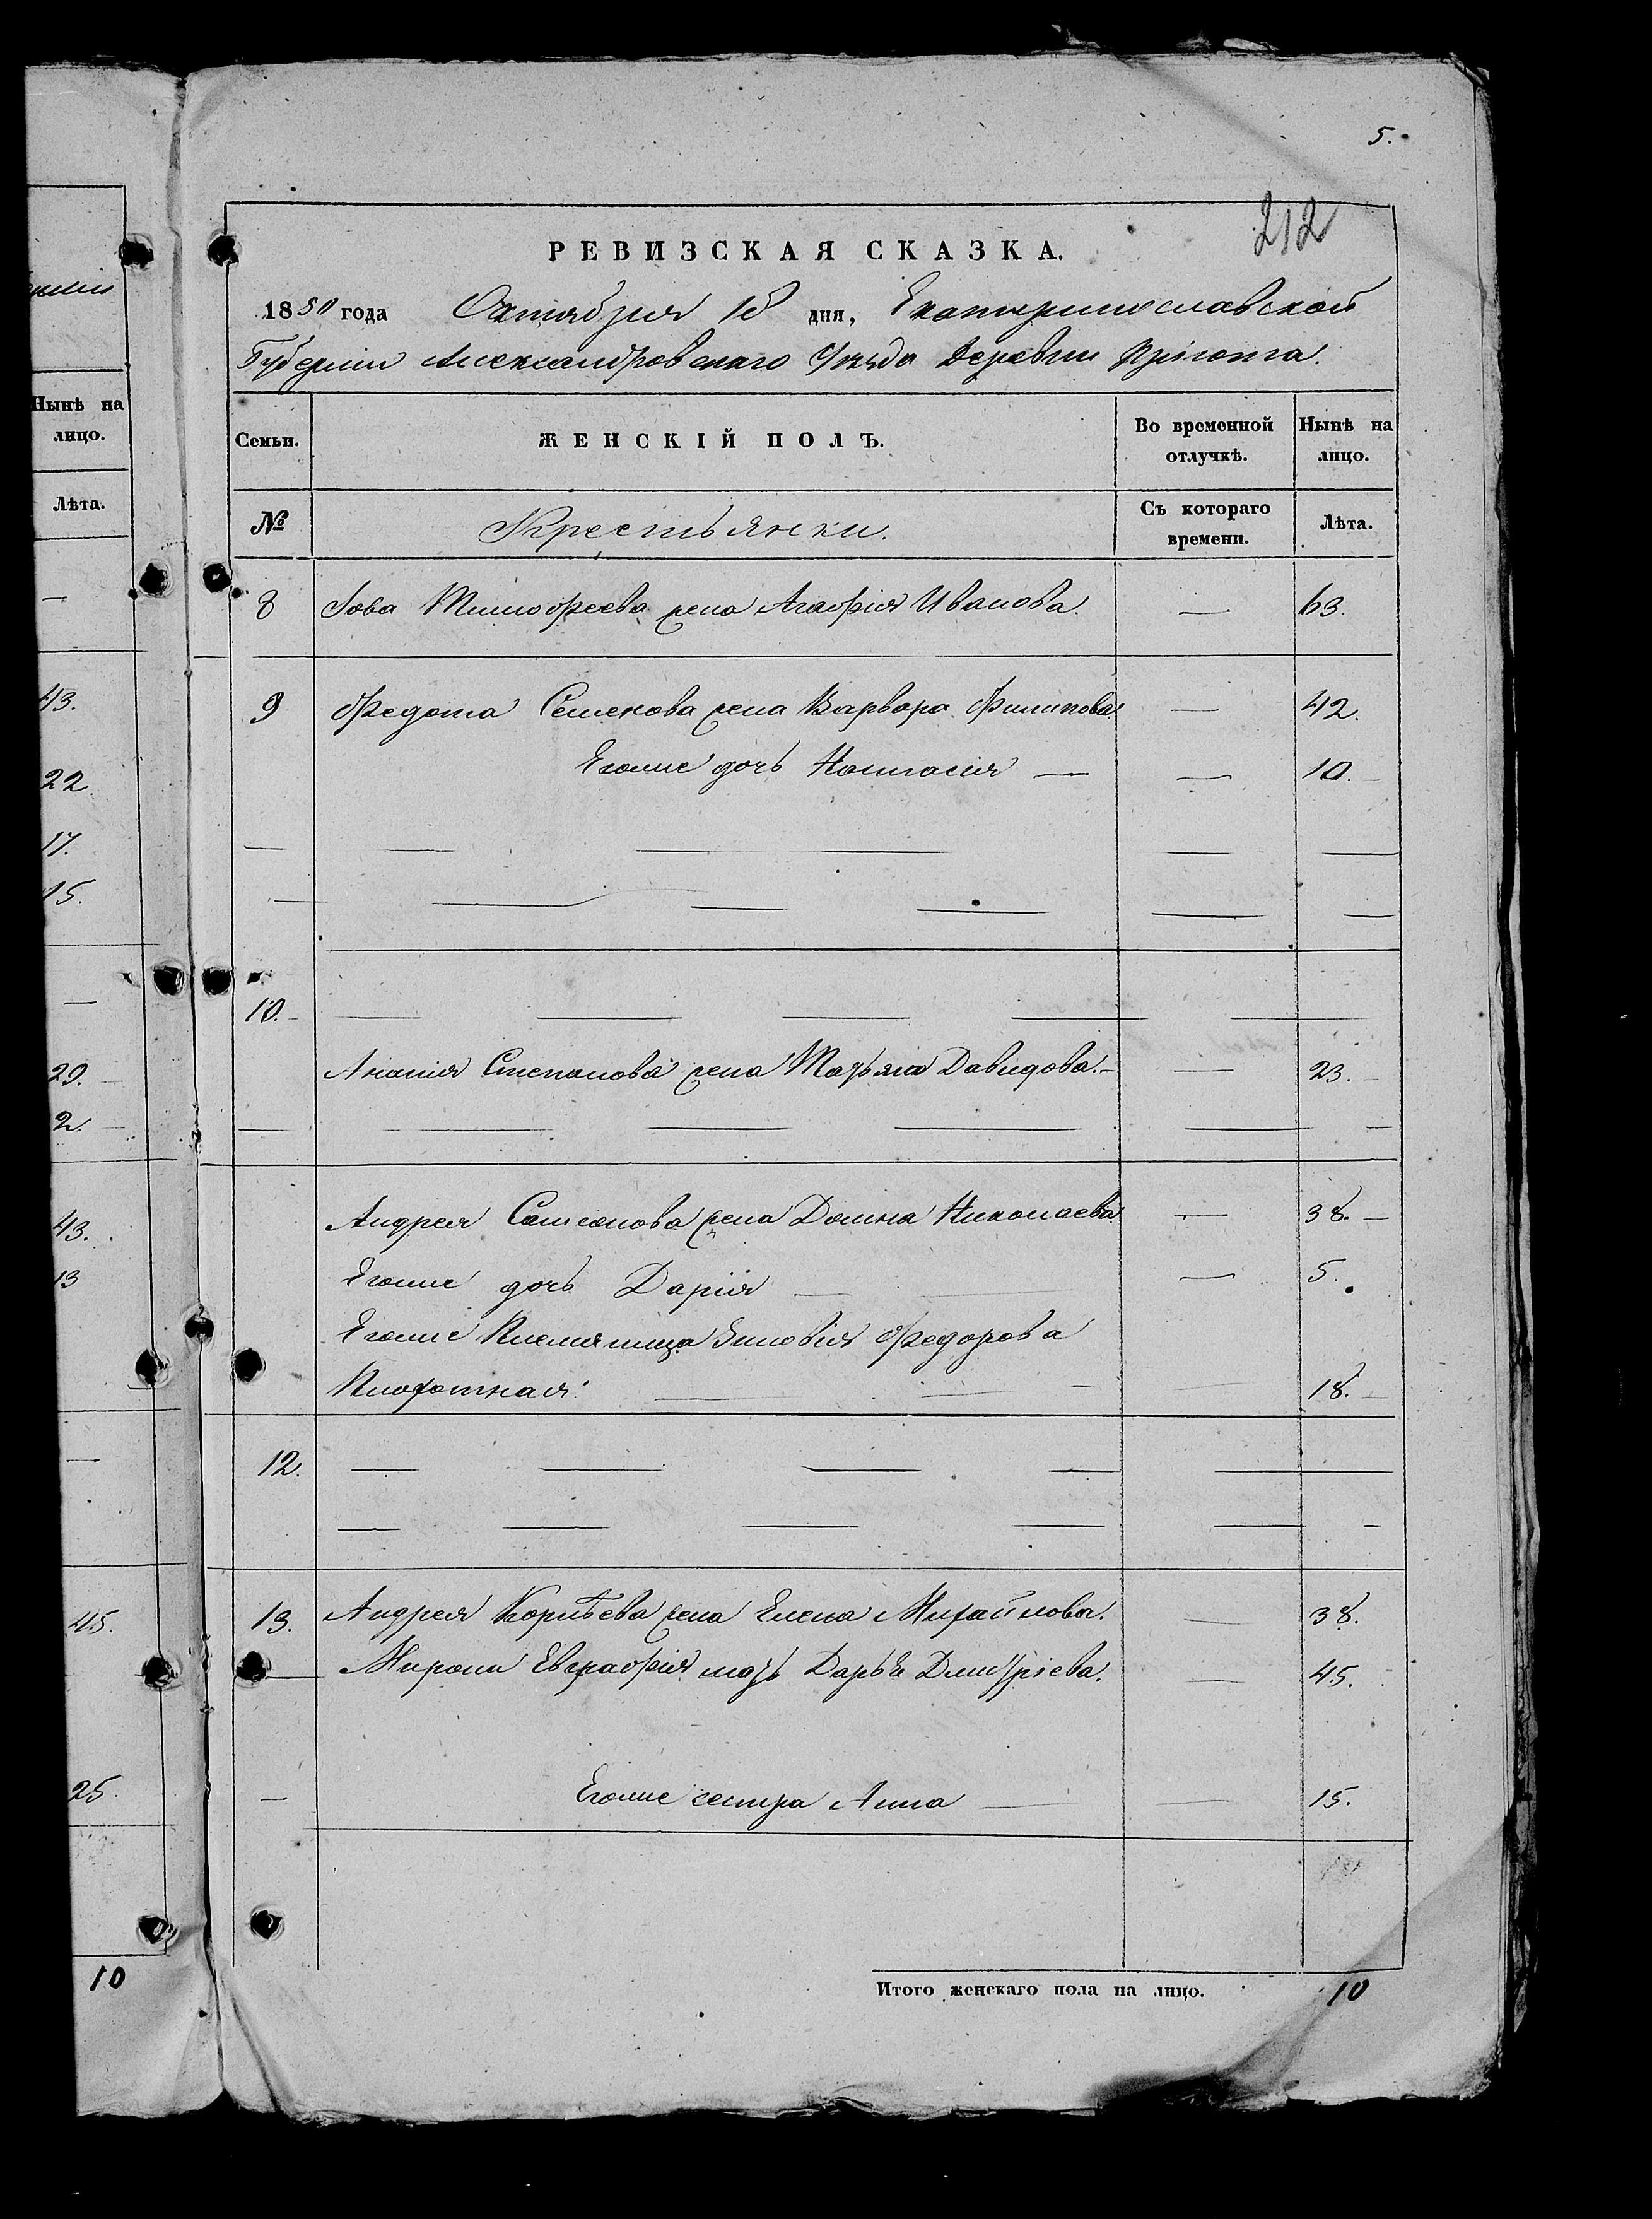 5.
212
РЕВИЗСКАЯ СКАЗКА.
1850 года Октября 18 дня, Екатеринославской
Губерніи Александровскаго Уѣзда Деревни
Семьи. ЖЕНСКІЙ ПОЛЪ. Во временной отлучкѣ. Нынѣ на лицо.
№ Крестьянки. Съ котораго времени. Лѣта.
8 Іова Тимофеева жена Агафія Иванова — 63.
9 Федота Семенова жена Варвара Филипова — 42.
Егоже дочь Настасія — — 10.
10.
Ананія Степанова жена Татьяна Давидова. — 23.
Андрея Самсонова жена Домна Николаева — 38.
Егоже дочь Дарія — 5.
Егоже Племяница Зиновія Федорова
18.
12.
13. Андрея жена Елена Михайлова. — 38.
Мирона Евграфія мать Дарья Дмитріева. — 45.
— Егоже сестра Анна — 15.
Итого женскаго пола на лицо. 10
Нынѣ на
лицо.
Лѣта.
—
43.
22.
17.
15.
—
29.
2.
43.
13
—
45.
25.
10